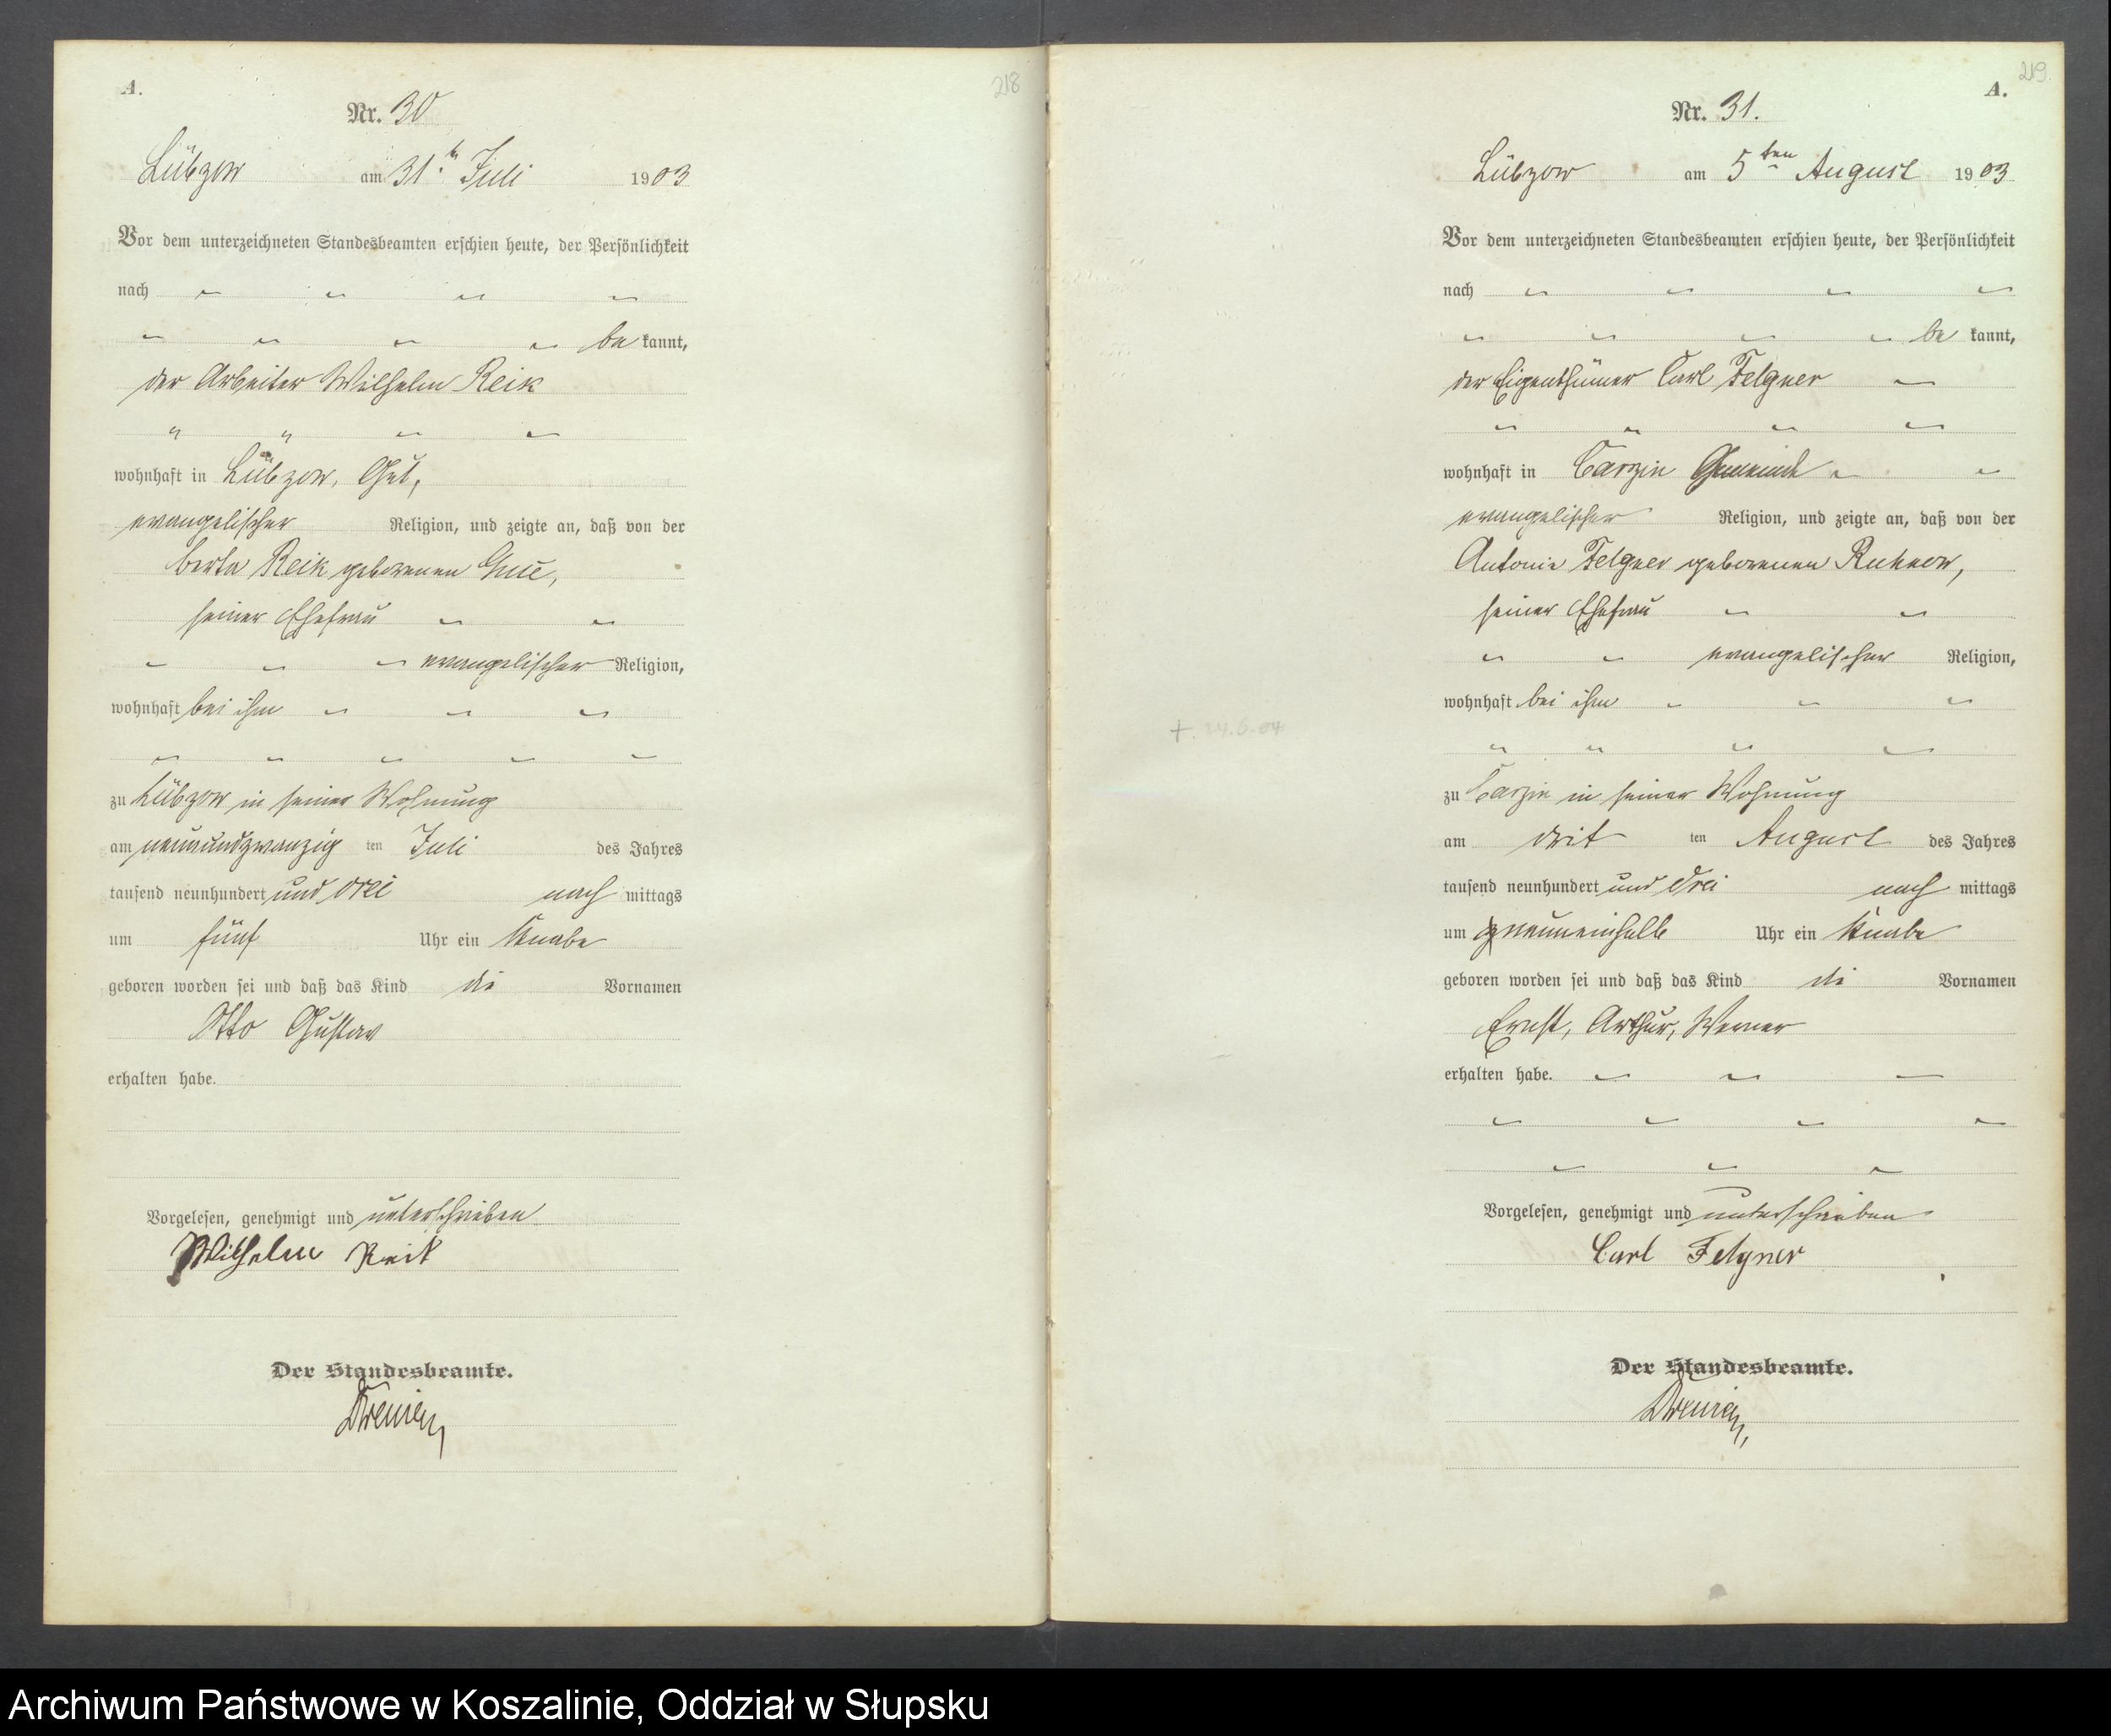 A.
218
Nr. 30
Lübzow am 31. Juli 1903
Vor dem unterzeichneten Standesbeamten erschien heute, der Persönlichkeit
nach
be kannt,
der Arbeiter Wilhelm Reik
wohnhaft in Lübzow, Gut,
evangelischer Religion, und zeigte an, daß von der
Berta Reik geborenen
seiner Ehefrau
evangelischer Religion,
wohnhaft bei ihm
zu Lübzow in seiner Wohnung
am neunundzwanzig ten Juli des Jahres
tausend neunhundert und drei nach mittags
um fünf Uhr ein Knabe
geboren worden sei und daß das Kind die Vornamen
Otto Gustav
erhalten habe.
Vorgelesen, genehmigt und unterschrieben
Wilhelm Reik
Der Standesbeamte.
219.
A.
Nr. 31.
Lübzow am 5ten August 1903
Vor dem unterzeichneten Standesbeamten erschien heute, der Persönlichkeit
nach
be kannt,
der Eigenthümer Carl Felgner
wohnhaft in Carzin Gemeinde
evangelischer Religion, und zeigte an, daß von der
Antonie Felgner geborenen Ruhnow,
seiner Ehefrau
evangelischer Religion,
wohnhaft bei ihm
+. 24.6.04
zu Carzin in seiner Wohnung
am drit ten August des Jahres
tausend neunhundert und drei nach mittags
um neuneinhalb Uhr ein Knabe
geboren worden sei und daß das Kind die Vornamen
Ernst, Arthur, Werner
erhalten habe.
Vorgelesen, genehmigt und unterschrieben
Carl Felgner
Der Standesbeamte.
Archiwum Państwowe w Koszalinie, Oddział w Słupsku